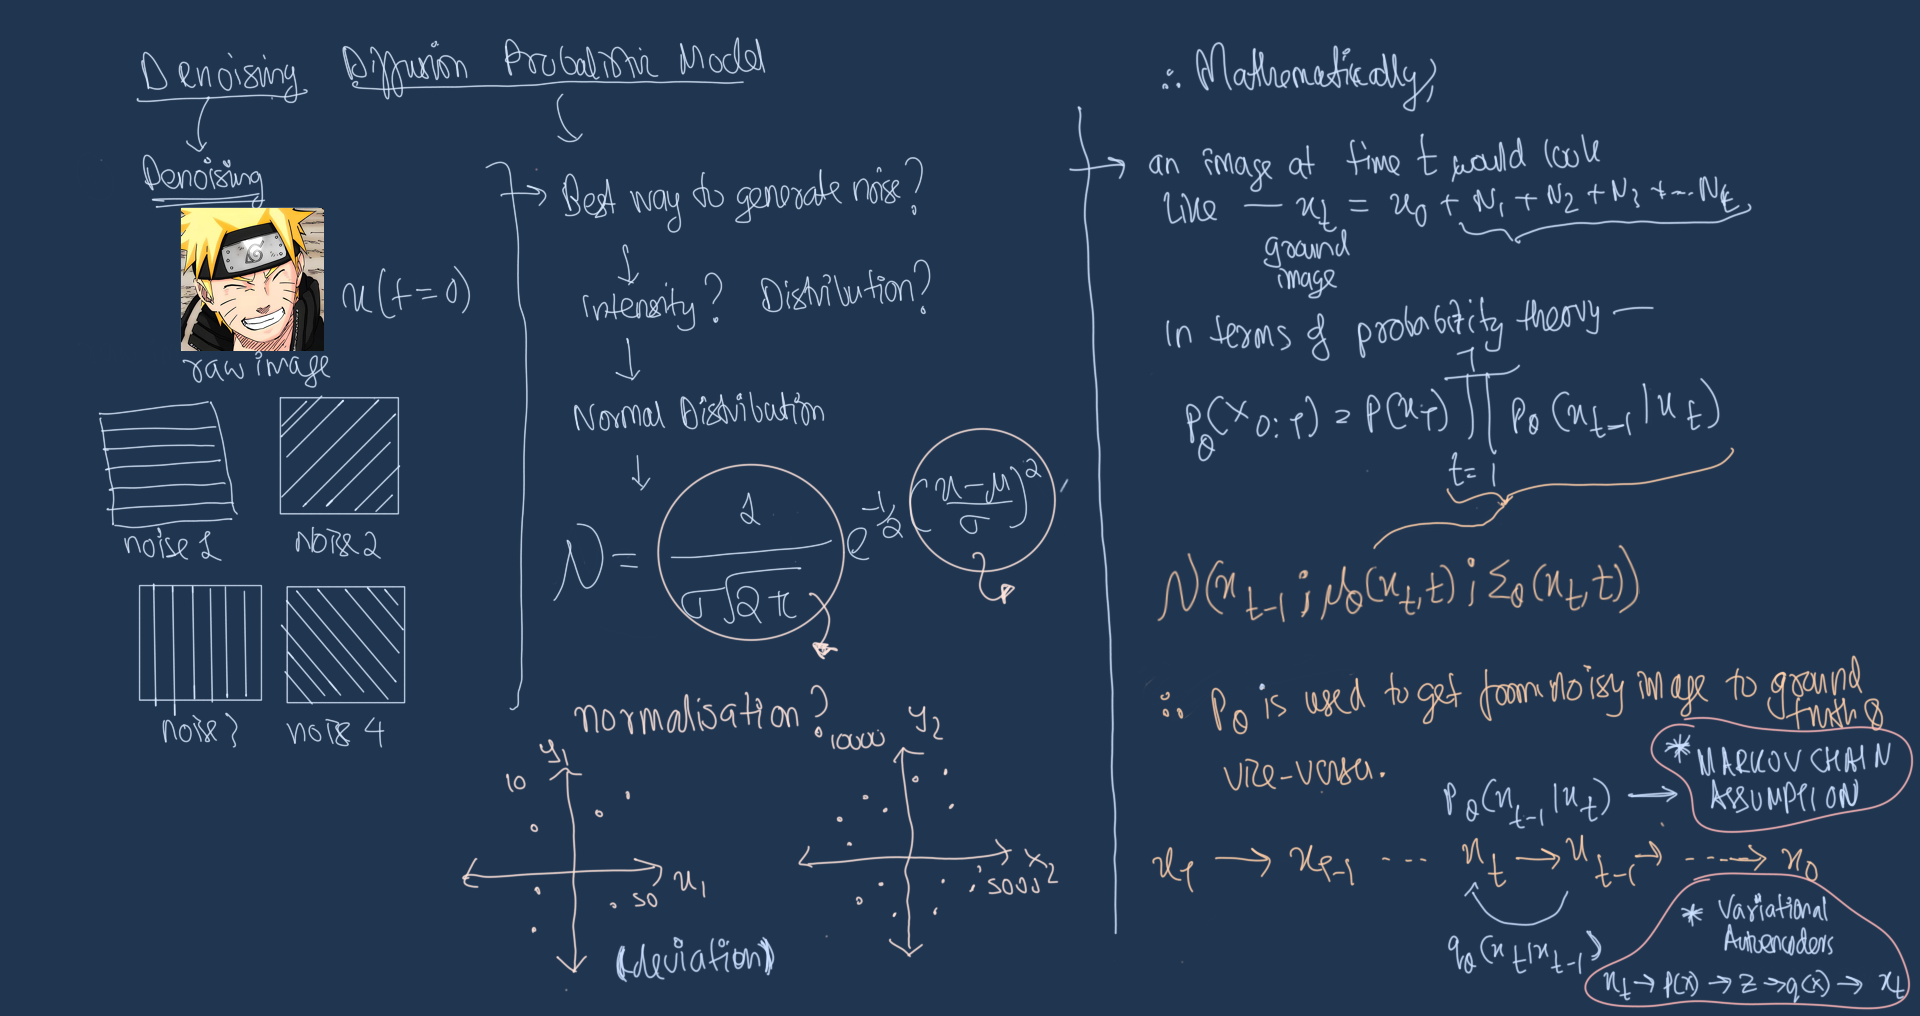 Denoising Diffusion Probalistic Model
Denoising
x(t=0)
raw image
noise 1
noise 2
noise 3
noise 4
Best way to generate noise?
intensity? Distribution?
Normal Distribution
N = 1/(σ√2π) e^-1/2 ((x-μ)/σ)^2
normalisation?
y1
10
50 x1
10000 y2
5000 x2
(deviation)
∴ Mathematically,
an image at time t would look
like — xt = x0 + N1 + N2 + N3 + ... Nt
ground
image
In terms of probability theory —
Pθ(x0:T) = P(xT) ∏ t=1 T Pθ(xt-1|xt)
N(xt-1; μθ(xt,t); Σθ(xt,t))
∴ Pθ is used to get from noisy image to ground
truth &
vice-versa.
* MARKOV CHAIN
ASSUMPTION
Pθ(xt-1|xt) →
xT → xT-1 ... xt → xt-1 → ---→ x0
qθ(xt|xt-1)
* Variational
Autoencoders
xt → p(x) → z → q(x) → xt